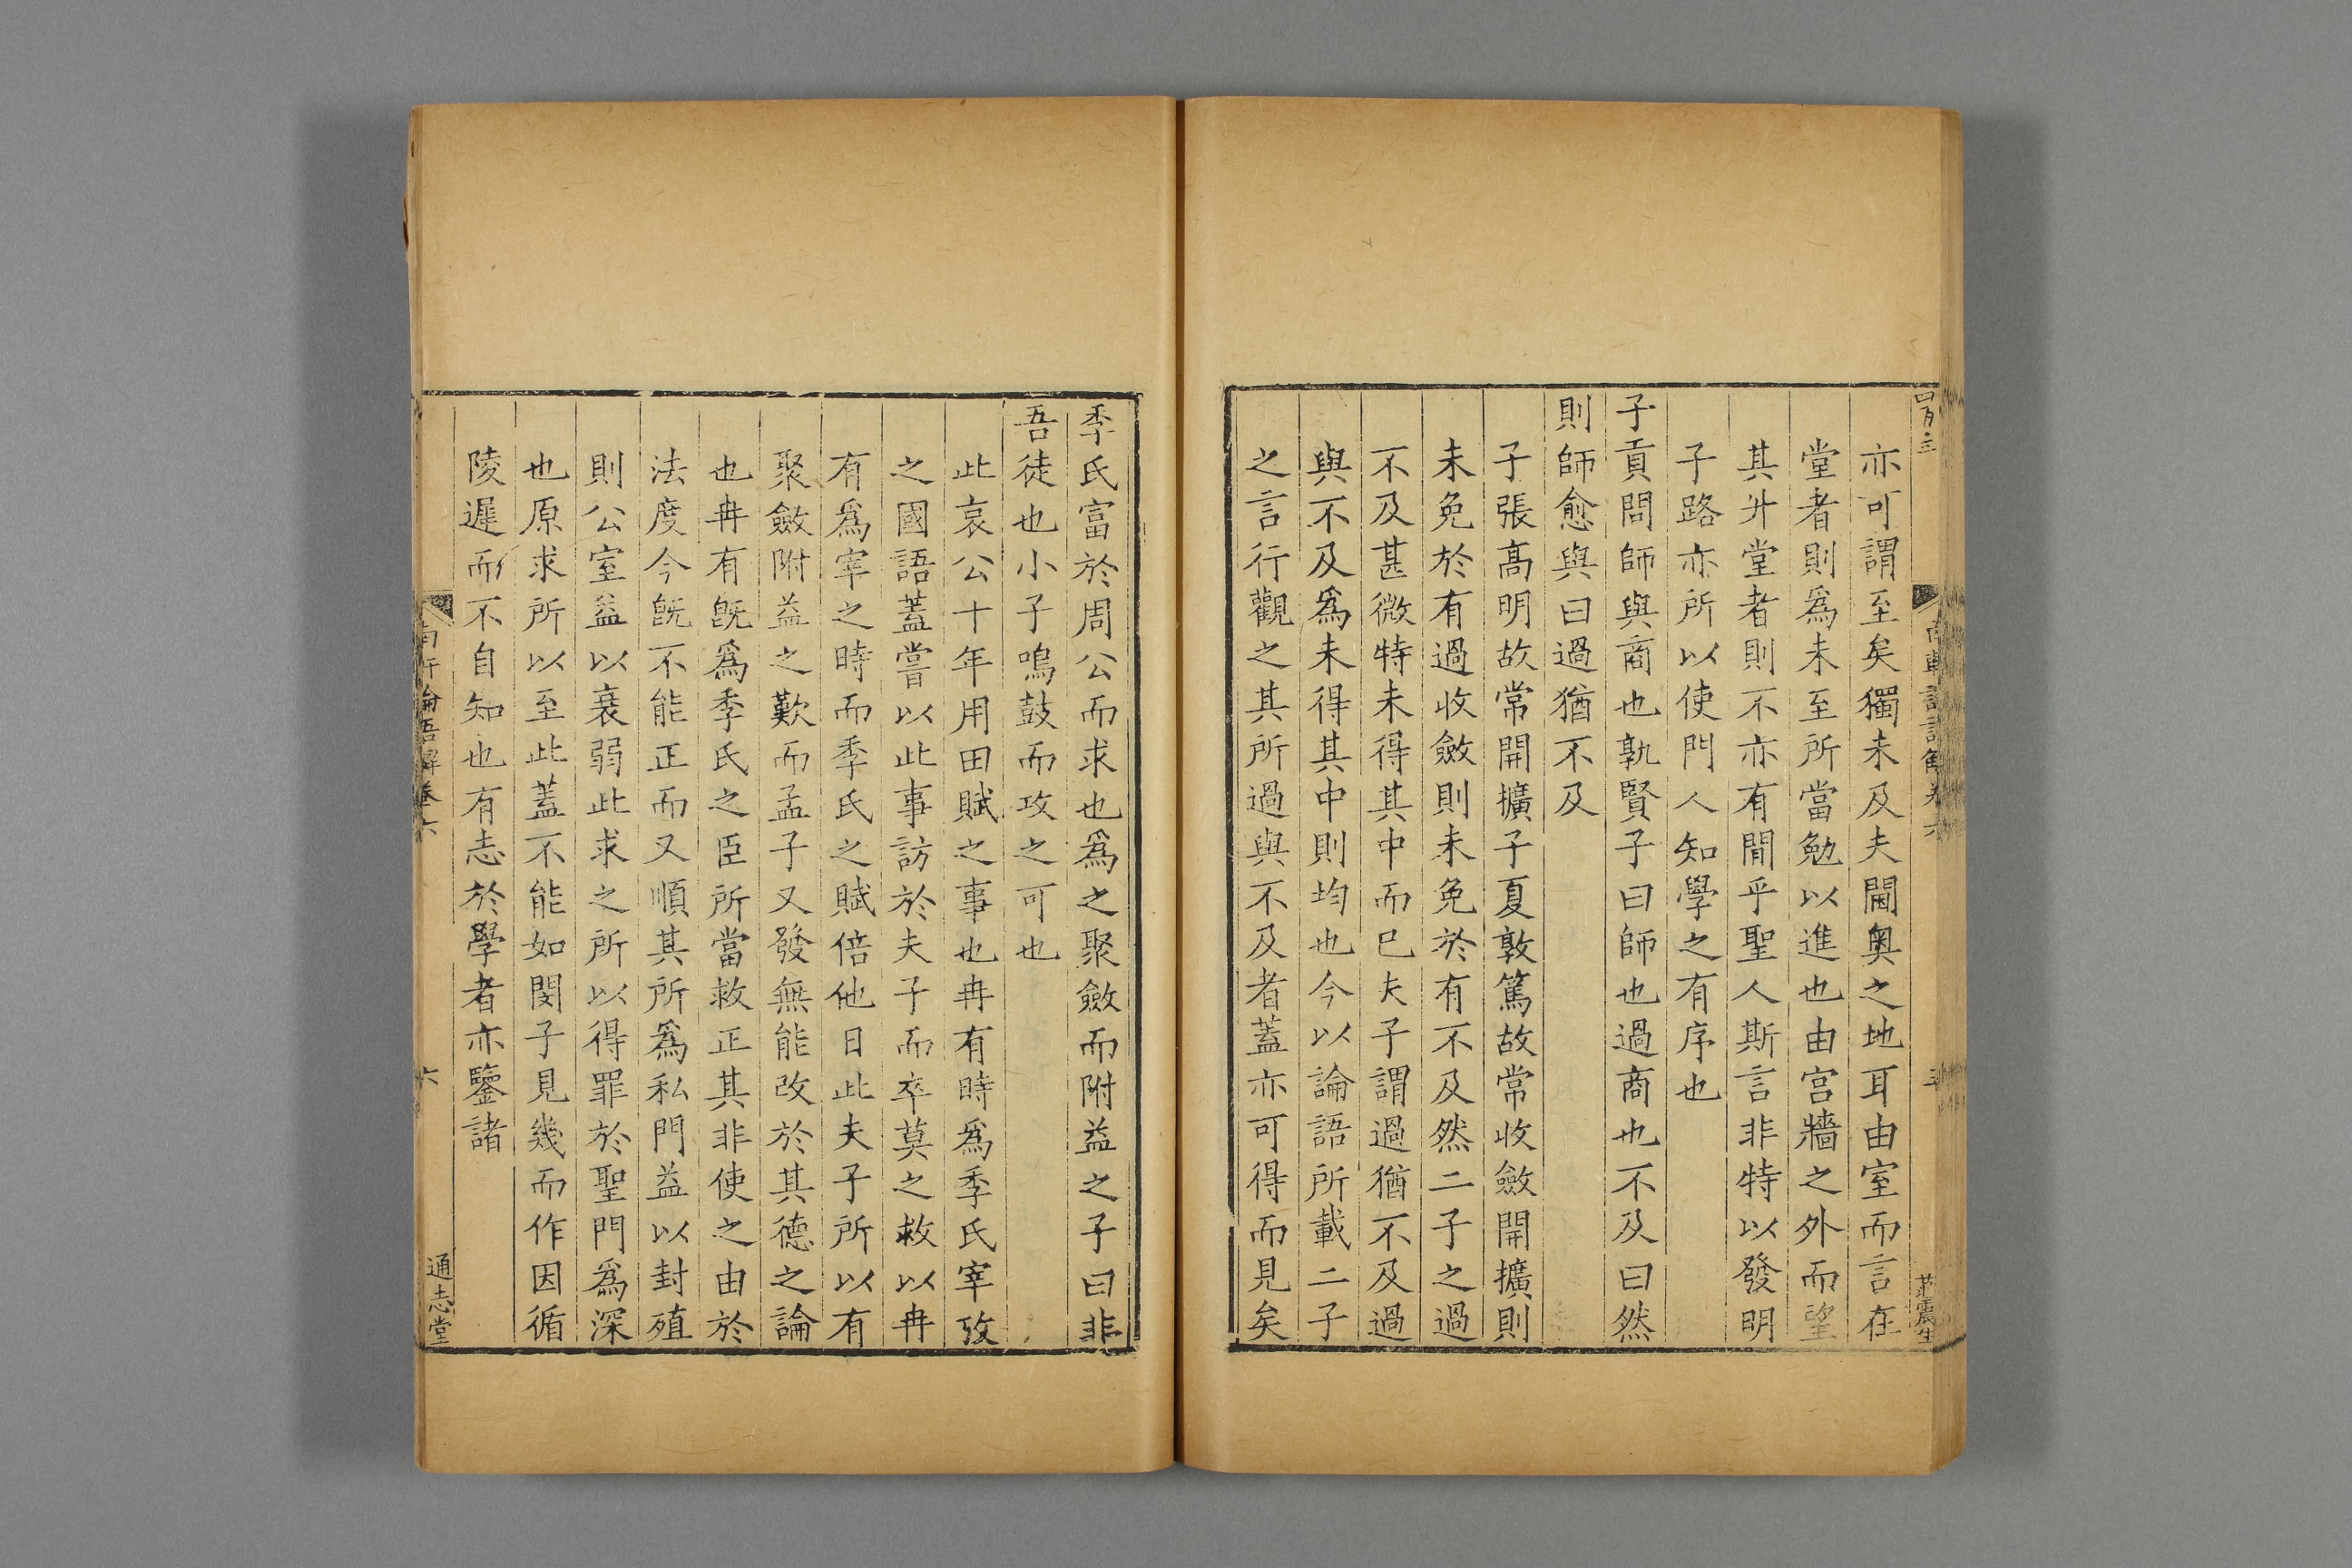 亦可謂至矣獨未及夫閫奥之地耳由室而言在
堂者則爲未至所當勉以進也由宫牆之外而望
其升堂者則不亦有閒乎聖人斯言非特以發明
子路亦所以使門人知學之有序也
子貢問師與商也孰賢子曰師也過商也不及曰然
則師愈與曰過猶不及
子張高明故常開擴子夏敦篤故常收斂開擴則
未免於有過收斂則未免於有不及然二子之過
不及甚微特未得其中而已夫子謂過猶不及過
與不及爲未得其中則均也今以論語所載二子
之言行觀之其所過與不及者蓋亦可得而見矣
季氏富於周公而求也爲之聚斂而附益之子曰非
吾徒也小子鳴鼓而攻之可也
此哀公十年用田賦之事也冉有時爲季氏宰攷
之國語蓋嘗以此事訪於夫子而卒莫之救以冉
有爲宰之時而季氏之賦倍他日此夫子所以有
聚斂附益之歎而孟子又發無能改於其德之論
也冉有旣爲季氏之臣所當救正其非使之由於
法度今旣不能正而又順其所爲私門益以封殖
則公室益以衰弱此求之所以得罪於聖門爲深
也原求所以至此蓋不能如閔子見幾而作因循
陵遲而不自知也有志於學者亦鑒諸
南軒論語解卷六
六
通志堂